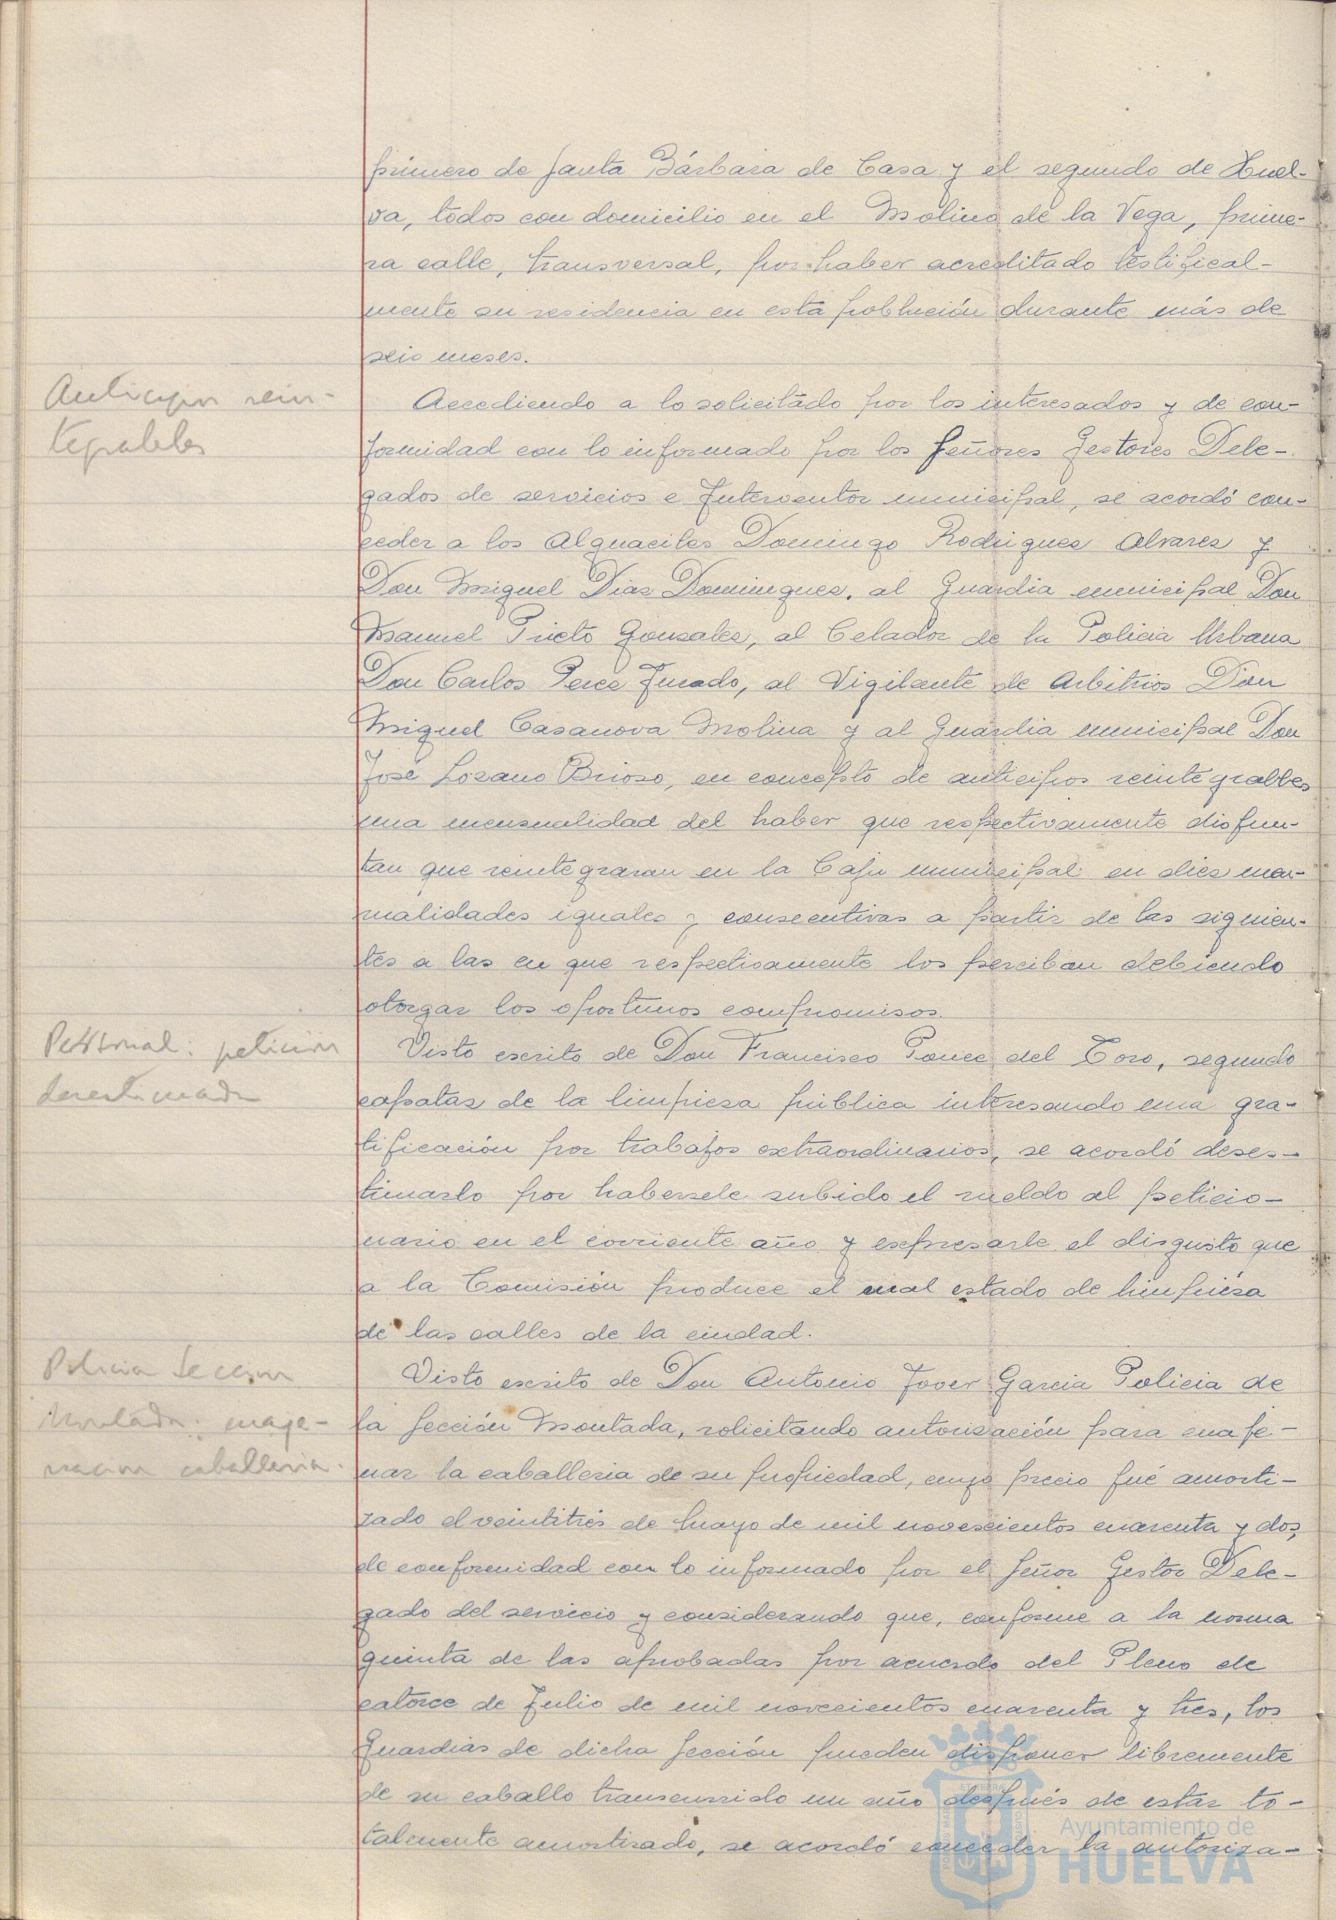 primero de Santa Bárbara de Casa y el segundo de Huel-
va, todos con domicilio en el Molino de la Vega, prime-
ra calle, transversal, por haber acreditado testifical-
mente su residencia en esta población durante más de
seis meses.
Anticipos rein-
tegrables
Accediendo a lo solicitado por los interesados y de con-
formidad con lo informado por los Señores Gestores Dele-
gados de servicios e Interventor municipal, se acordó con-
ceder a los Alguaciles Domingo Rodrigues Alvares y
Don Miguel Dias Domingues, al Guardia municipal Don
Manuel Prieto Gonzales, al Celador de la Policia Urbana
Don Carlos Peres Jurado, al Vigilante de Arbitrios Don
Miguel Casanova Molina y al Guardia municipal Don
José Lozano Brioso, en concepto de anticipos reintegrables
una mensualidad del haber que respectivamente disfun-
tan que reintegraran en la Caja municipal en dies men-
sualidades iguales y consecutivas a partir de las siguien-
tes a las en que respectivamente los perciban debiendo
otorgar los oportunos compromisos.
Personal: peticion
desestimada
Visto escrito de Don Francisco Ponce del Toro, segundo
capatas de la limpiesa pública interesando una gra-
tificación por trabajos extraordinarios, se acordó deses-
timarlo por habersele subido el sueldo al peticio-
nario en el corriente año y expresarle el disgusto que
a la Comisión produce el mal estado de limpiesa
de las calles de la ciudad.
Policia Seccion
Montada: enaje-
nacion caballeria.
Visto escrito de Don Antonio Jover Garcia Policia de
la Sección Montada, solicitando autorización para enaje-
nar la caballeria de su propiedad, cuyo precio fué amorti-
zado el veintitrés de Mayo de mil novescientos cuarenta y dos,
de conformidad con lo informado por el Señor Gestor Dele-
gado del servicio y considerando que, conforme a la norma
quinta de las aprobadas por acuerdo del Pleno de
catorce de Julio de mil novecientos cuarenta y tres, los
Guardias de dicha Sección pueden disponer libremente
de su caballo transcurrido un año después de estar to-
talmente amortizado, se acordó conceder la autoriza-
Ayuntamiento de
HUELVA